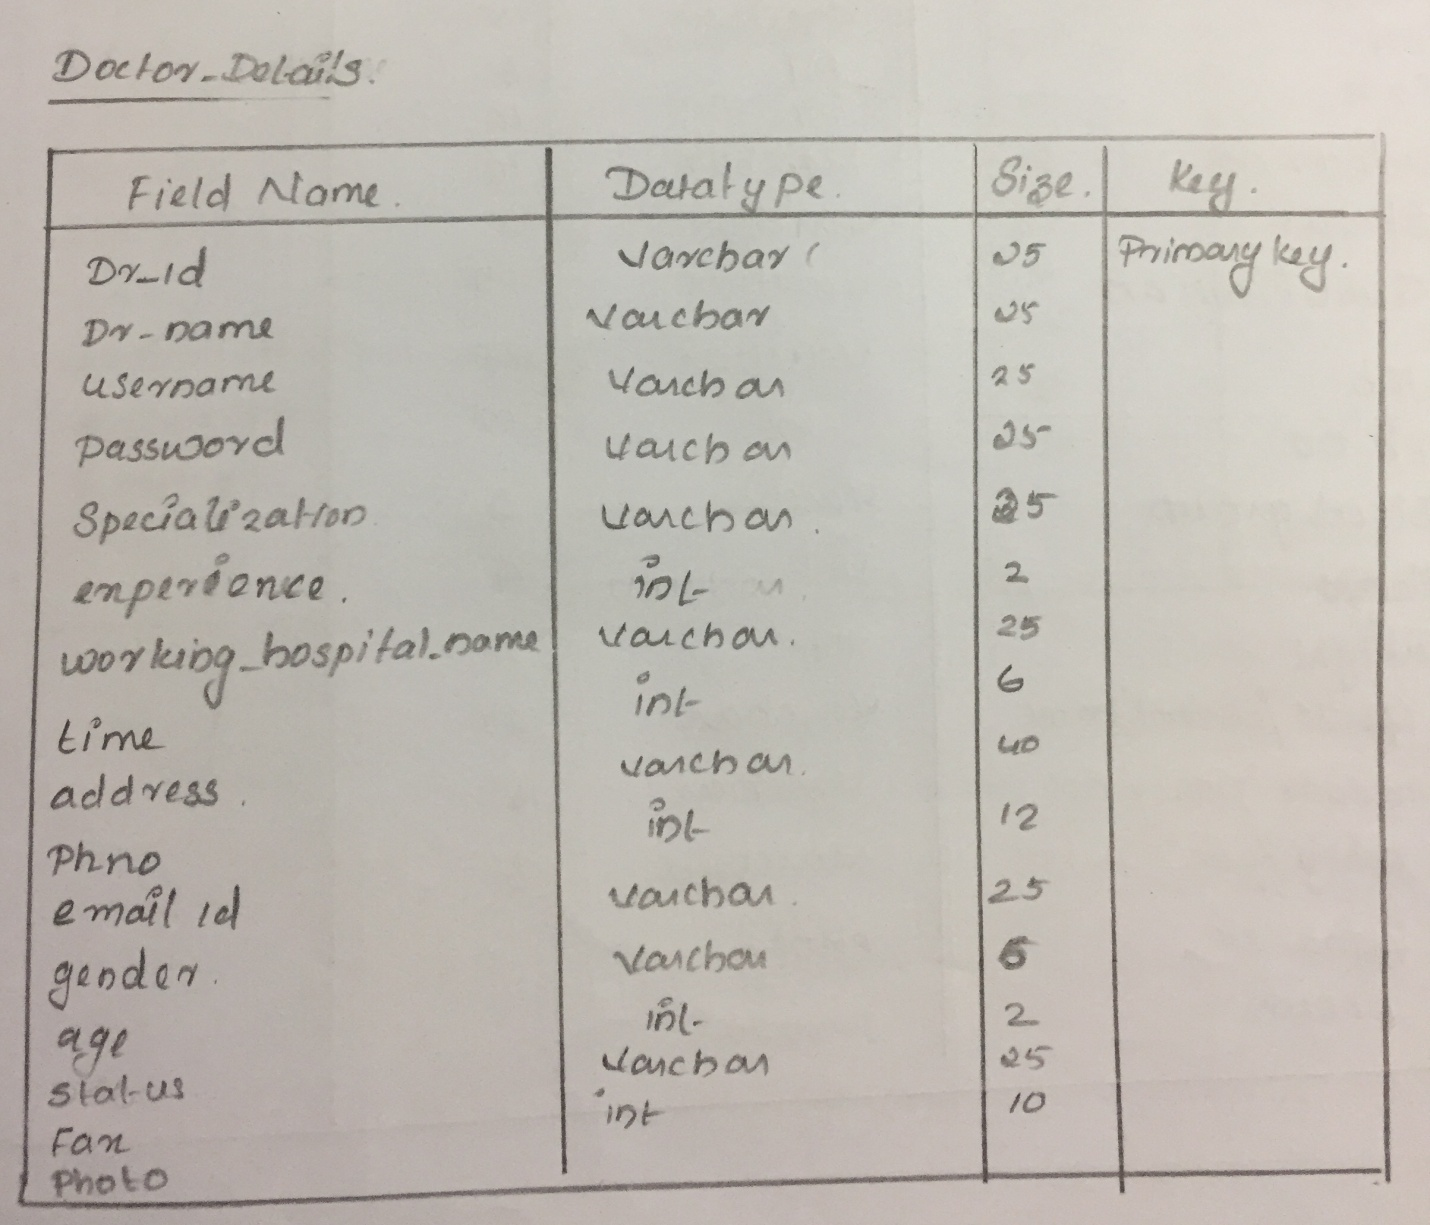 Doctor_Details.
Field Name. Datatype. Size. Key.
Dr_id Varchar 25 Primary key.
Dr-name Varchar 25
username Varchar 25
password Varchar 25
Specialization Varchar. 25
experience. int 2
working_hospital_name Varchar. 25
time int 6
address. varchar. 40
Phno int 12
email id varchar. 25
gender. Varchar 6
age int 2
status Varchar 25
Fax int 10
Photo